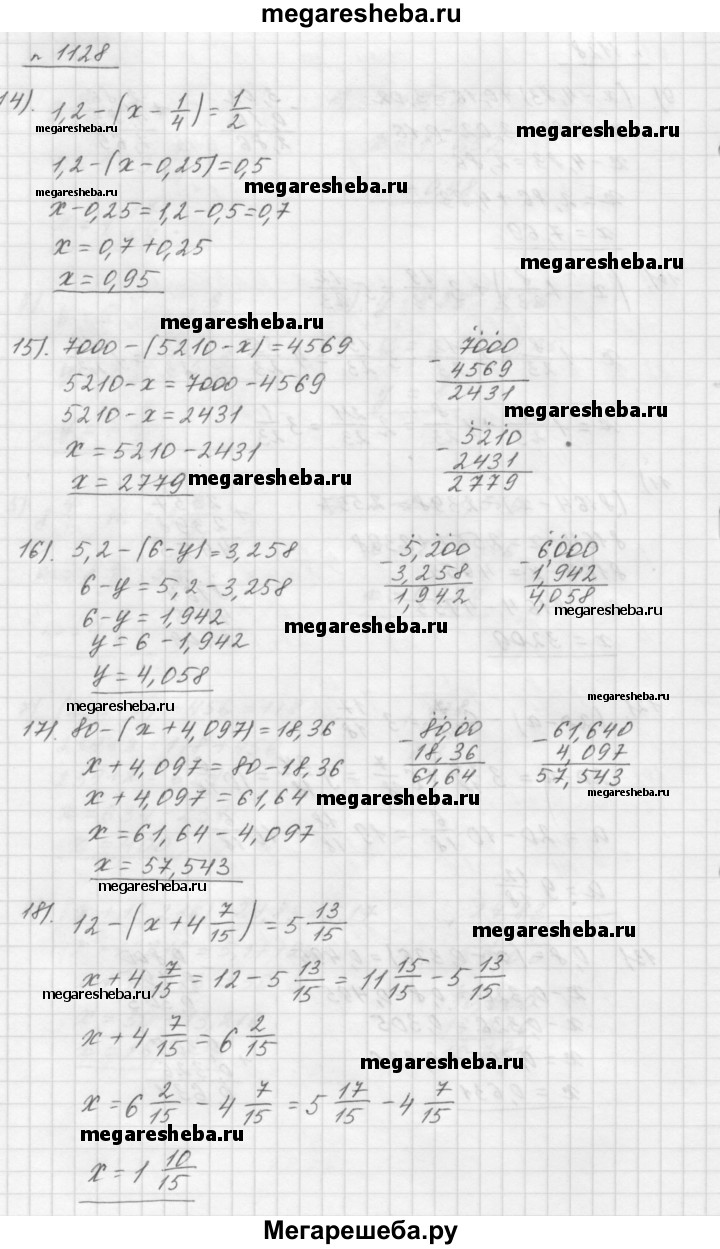 megaresheba.ru
n 1128
14). 1,2 - (x - 1/4) = 1/2
megaresheba.ru
megaresheba.ru
1,2 - (x - 0,25) = 0,5
megaresheba.ru
megaresheba.ru
x - 0,25 = 1,2 - 0,5 = 0,7
x = 0,7 + 0,25
megaresheba.ru
x = 0,95
megaresheba.ru
15). 7000 - (5210 - x) = 4569
5210 - x = 7000 - 4569
5210 - x = 2431
x = 5210 - 2431
x = 2779
megaresheba.ru
7000
- 4569
2431
megaresheba.ru
5210
- 2431
2779
16). 5,2 - (6 - y) = 3,258
6 - y = 5,2 - 3,258
6 - y = 1,942
y = 6 - 1,942
y = 4,058
megaresheba.ru
5,200
- 3,258
1,942
6000
- 1,942
4,058
megaresheba.ru
megaresheba.ru
megaresheba.ru
17). 80 - (x + 4,097) = 18,36
x + 4,097 = 80 - 18,36
x + 4,097 = 61,64
megaresheba.ru
x = 61,64 - 4,097
x = 57,543
megaresheba.ru
80,00
- 18,36
61,64
61,640
- 4,097
57,543
megaresheba.ru
18). 12 - (x + 4 7/15) = 5 13/15
megaresheba.ru
x + 4 7/15 = 12 - 5 13/15 = 11 15/15 - 5 13/15
megaresheba.ru
x + 4 7/15 = 6 2/15
megaresheba.ru
x = 6 2/15 - 4 7/15 = 5 17/15 - 4 7/15
megaresheba.ru
x = 1 10/15
Мегарешеба.ру